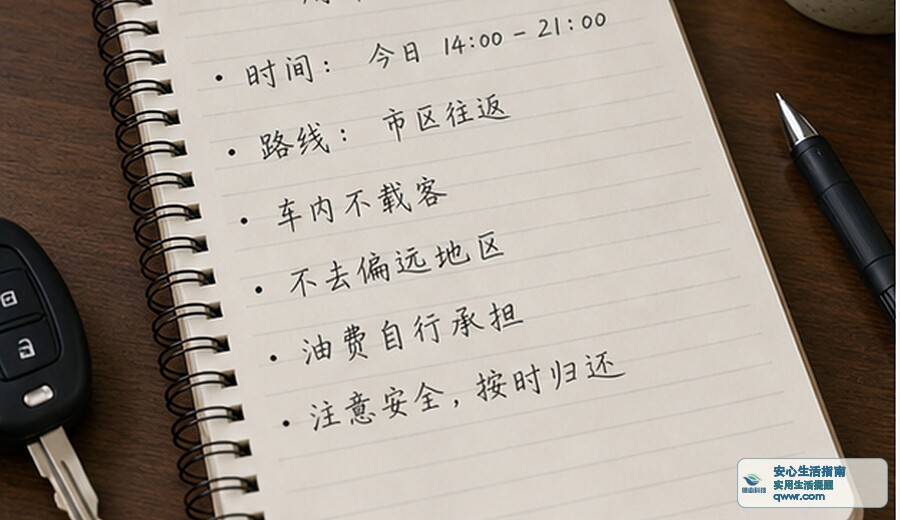 • 时间： 今日 14:00 – 21:00
• 路线： 市区往返
• 车内不载客
• 不去偏远地区
• 油费自行承担
• 注意安全，按时归还
安心生活指南
实用生活提醒
qwwr.com